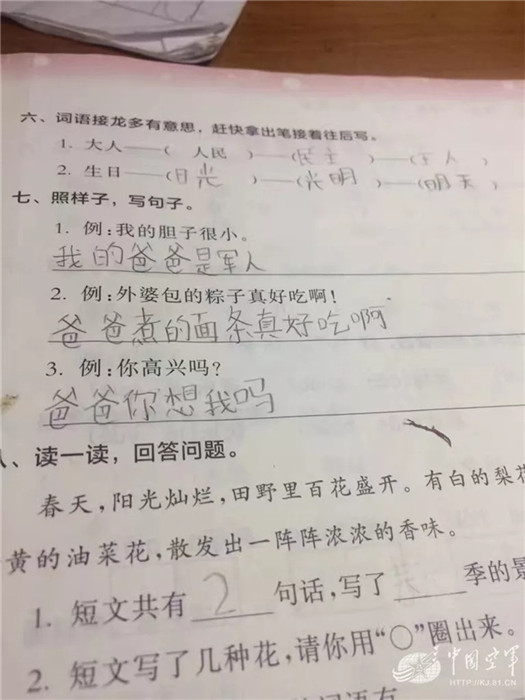 六、词语接龙多有意思，赶快拿出笔接着往后写。
1. 大人——（ 人民 ）——（民主）——（主人 ）
2. 生日——（日光 ）——（光明）——（明天）
七、照样子，写句子。
1. 例：我的胆子很小。
我的爸爸是军人
2. 例：外婆包的粽子真好吃啊！
爸爸煮的面条真好吃啊
3. 例：你高兴吗？
爸爸你想我吗
八、读一读，回答问题。
春天，阳光灿烂，田野里百花盛开。有白的梨花
黄的油菜花，散发出一阵阵浓浓的香味。
1. 短文共有 2 句话，写了 季的景
2. 短文写了几种花，请你用“○”圈出来。
中国空军
HTTP://KJ.81.CN